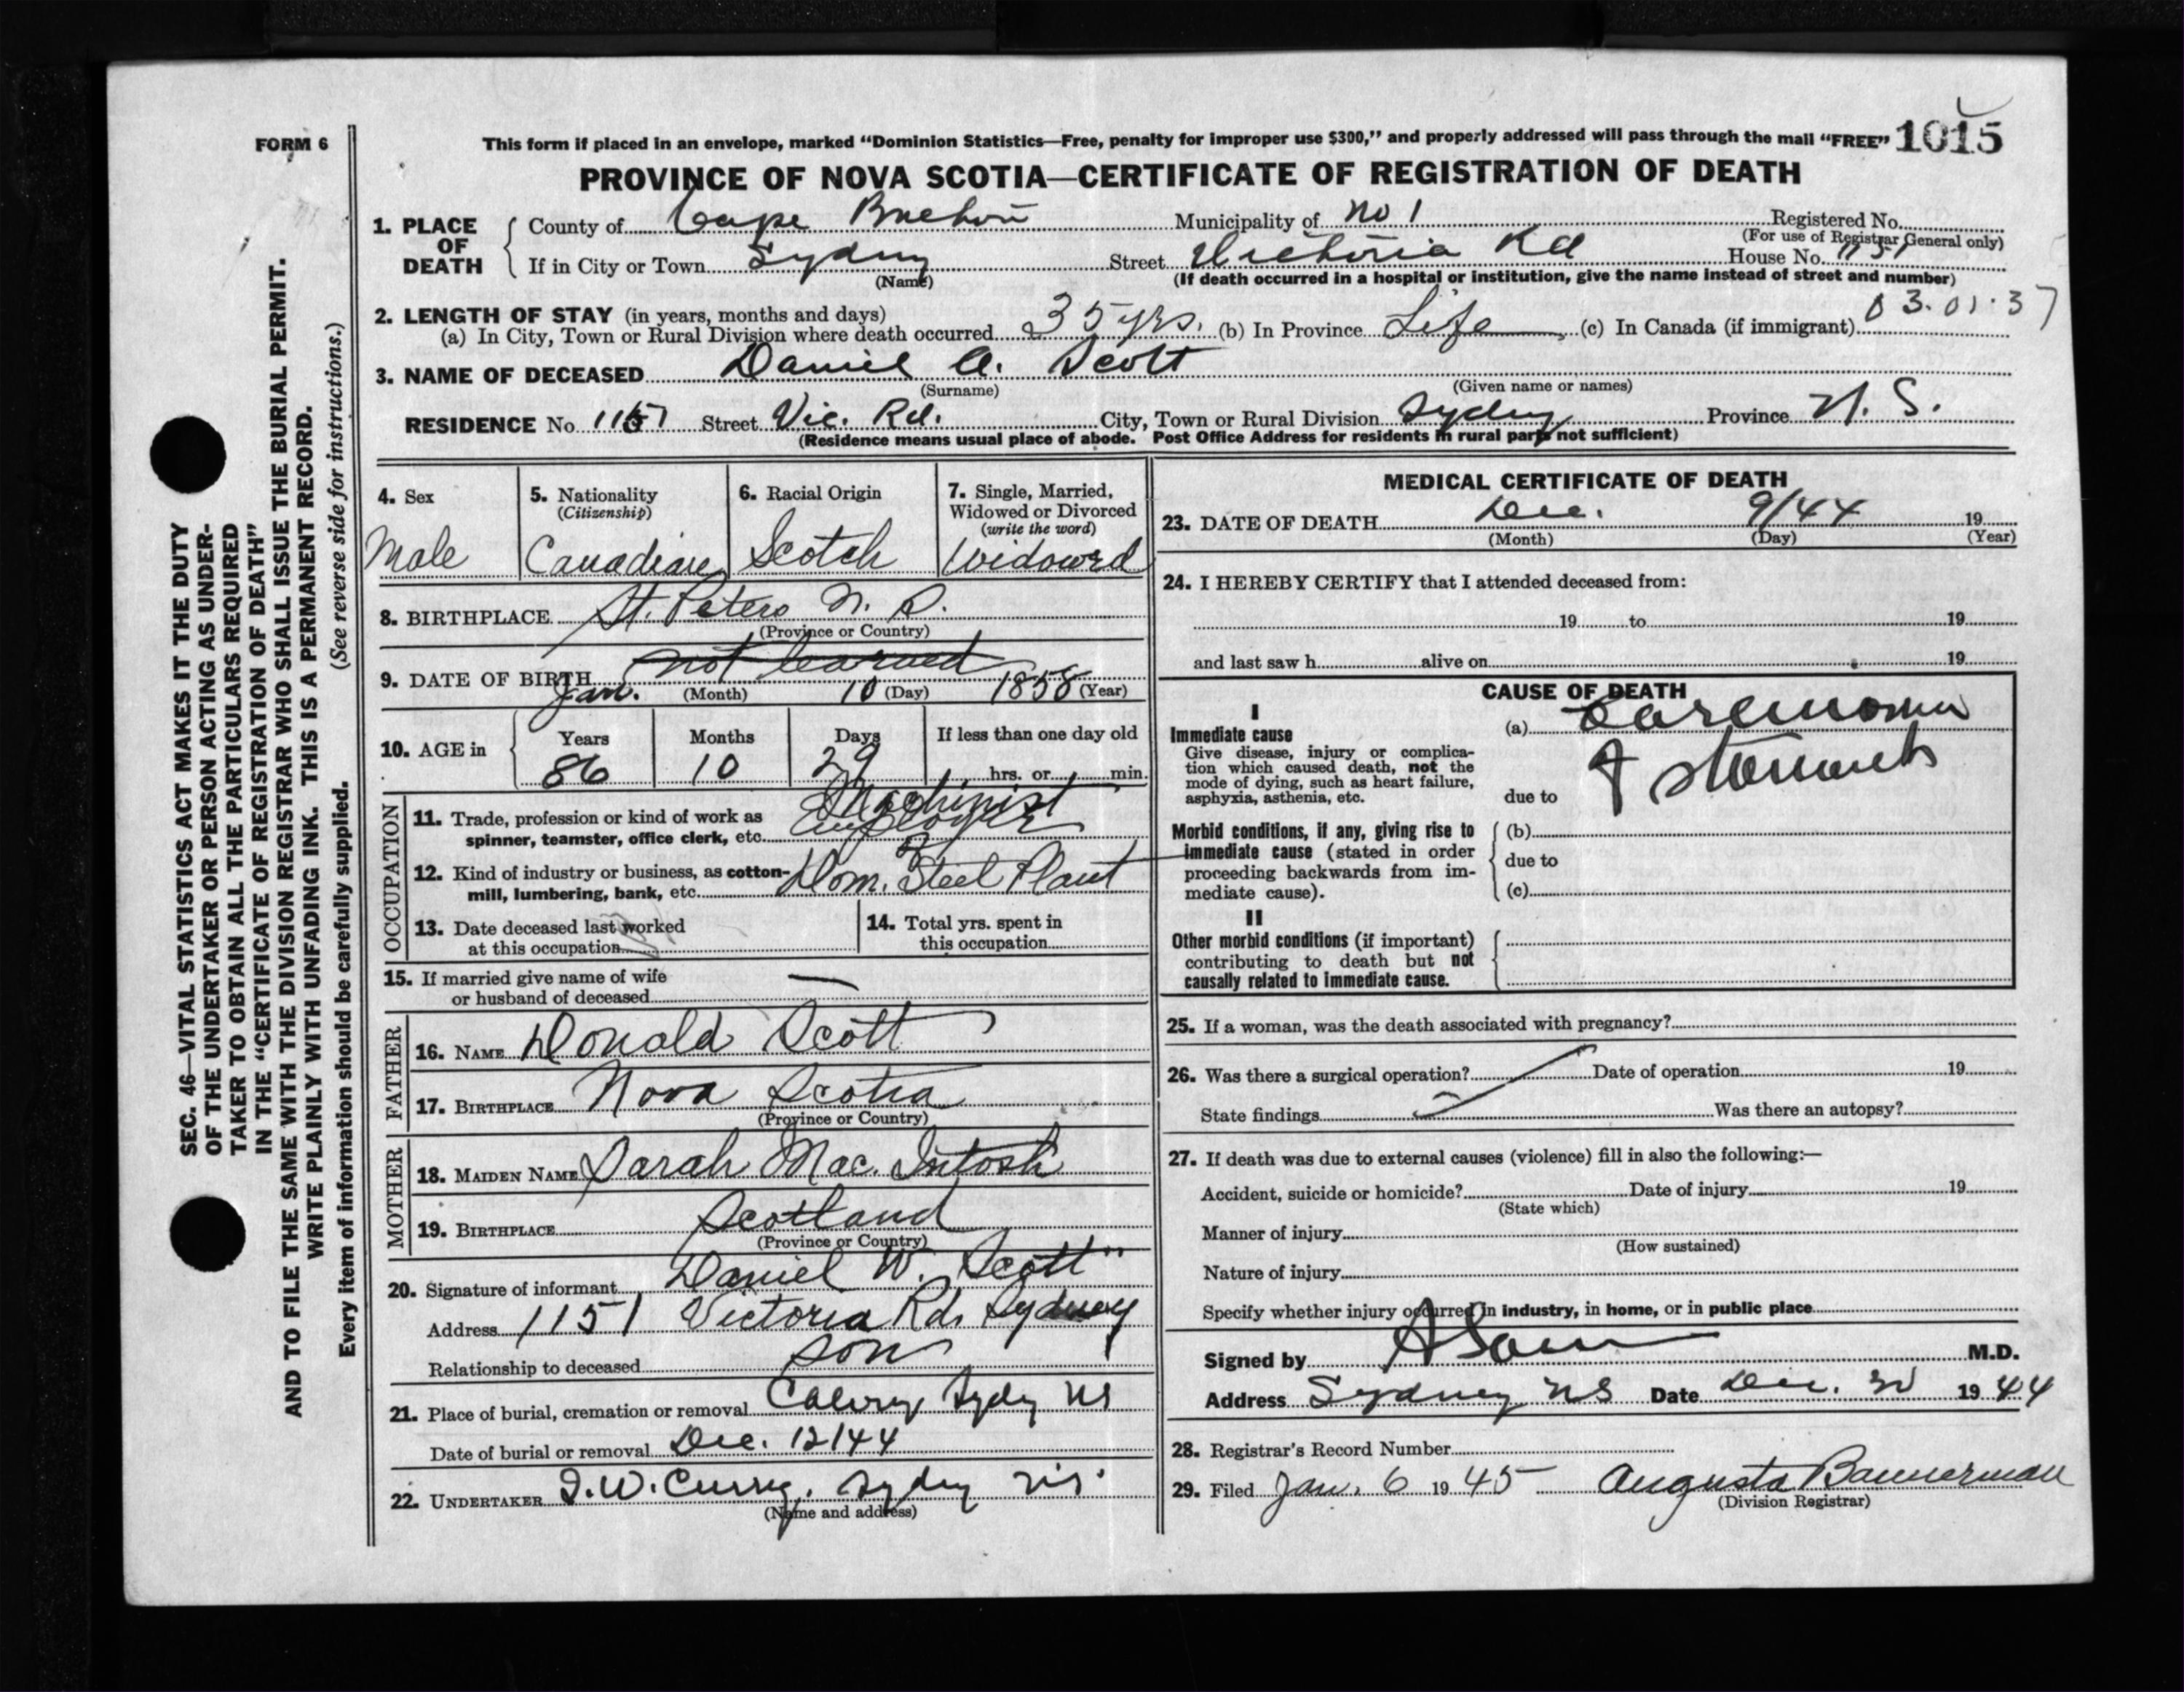 FORM 6
This form if placed in an envelope, marked "Dominion Statistics—Free, penalty for improper use $300," and properly addressed will pass through the mail "FREE" 1015
PROVINCE OF NOVA SCOTIA—CERTIFICATE OF REGISTRATION OF DEATH
1. PLACE OF DEATH
County of Cape Breton Municipality of No 1 Registered No.
(For use of Registrar General only)
If in City or Town Sydney Street Victoria Rd House No. 1151
(Name) (If death occurred in a hospital or institution, give the name instead of street and number)
2. LENGTH OF STAY (in years, months and days) 03.01.37
(a) In City, Town or Rural Division where death occurred 35 yrs. (b) In Province Life (c) In Canada (if immigrant)
3. NAME OF DECEASED Daniel A. Scott
(Surname) (Given name or names)
RESIDENCE No 1151 Street Vic. Rd. City, Town or Rural Division Sydney Province N. S.
(Residence means usual place of abode. Post Office Address for residents in rural parts not sufficient)
SEC. 46—VITAL STATISTICS ACT MAKES IT THE DUTY
OF THE UNDERTAKER OR PERSON ACTING AS UNDER-
TAKER TO OBTAIN ALL THE PARTICULARS REQUIRED
IN THE "CERTIFICATE OF REGISTRATION OF DEATH"
AND TO FILE THE SAME WITH THE DIVISION REGISTRAR WHO SHALL ISSUE THE BURIAL PERMIT.
WRITE PLAINLY WITH UNFADING INK. THIS IS A PERMANENT RECORD.
Every item of information should be carefully supplied. (See reverse side for instructions.)
4. Sex
Male
5. Nationality
(Citizenship)
Canadian
6. Racial Origin
Scotch
7. Single, Married,
Widowed or Divorced
(write the word)
Widowed
8. BIRTHPLACE St. Peters N. S.
(Province or Country)
not learned
9. DATE OF BIRTH Jan. (Month) 10 (Day) 1858 (Year)
10. AGE in
Years Months Days If less than one day old
86 10 29 hrs. or min.
OCCUPATION
Machinist
11. Trade, profession or kind of work as
spinner, teamster, office clerk, etc. Employee
12. Kind of industry or business, as cotton-
mill, lumbering, bank, etc. Dom. Steel Plant
13. Date deceased last worked
at this occupation
14. Total yrs. spent in
this occupation
15. If married give name of wife
or husband of deceased —
FATHER
16. NAME Donald Scott
17. BIRTHPLACE Nova Scotia
(Province or Country)
MOTHER
18. MAIDEN NAME Sarah Mac. Intosh
19. BIRTHPLACE Scotland
(Province or Country)
20. Signature of informant Daniel W. Scott
Address 1151 Victoria Rd. Sydney
Relationship to deceased son
21. Place of burial, cremation or removal Calvry Sydney NS
Date of burial or removal Dec. 12/44
22. UNDERTAKER Curry, Sydney N.S.
(Name and address)
MEDICAL CERTIFICATE OF DEATH
23. DATE OF DEATH Dec. 9/44 19
(Month) (Day) (Year)
24. I HEREBY CERTIFY that I attended deceased from:
19 to 19
and last saw h alive on 19
CAUSE OF DEATH
I
Immediate cause
Give disease, injury or complica-
tion which caused death, not the
mode of dying, such as heart failure,
asphyxia, asthenia, etc.
(a) Carcinoma
due to of stomach
Morbid conditions, if any, giving rise to
immediate cause (stated in order
proceeding backwards from im-
mediate cause).
(b)
due to
(c)
II
Other morbid conditions (if important)
contributing to death but not
causally related to immediate cause.
25. If a woman, was the death associated with pregnancy?
26. Was there a surgical operation? Date of operation 19
State findings Was there an autopsy?
27. If death was due to external causes (violence) fill in also the following:—
Accident, suicide or homicide? Date of injury 19
(State which)
Manner of injury
(How sustained)
Nature of injury
Specify whether injury occurred in industry, in home, or in public place
Signed by M.D.
Address Sydney NS Date Dec. 1944
28. Registrar's Record Number
29. Filed Jan. 6 1945 Augusta Bannerman
(Division Registrar)